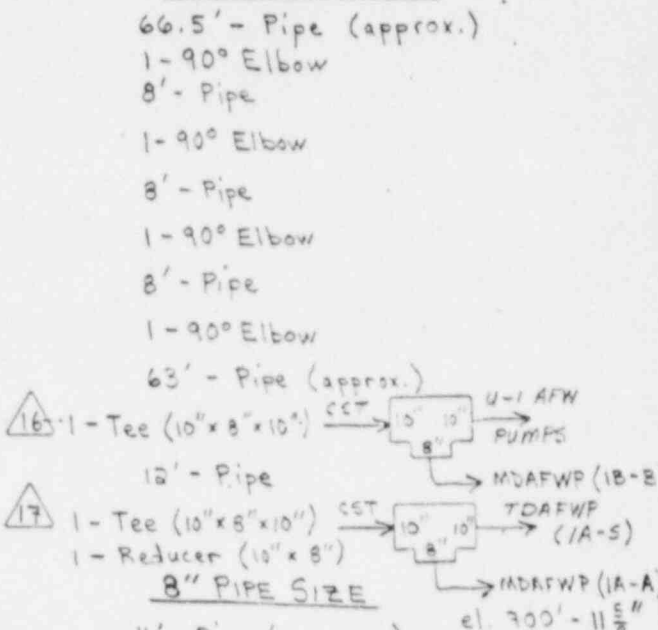 66.5' - Pipe (approx.)
1 - 90° Elbow
8' - Pipe
1 - 90° Elbow
8' - Pipe
1 - 90° Elbow
8' - Pipe
1 - 90° Elbow
63' - Pipe (approx.)
16 1 - Tee (10" x 8" x 10") CST 10" 10" 8" U-1 AFW PUMPS
MDAFWP (1B-B
12' - Pipe
17 1 - Tee (10" x 8" x 10") CST 10" 10" 8" TDAFWP (1A-S)
1 - Reducer (10" x 8")
MDAFWP (1A-A)
8" PIPE SIZE
el. 700' - 11 5/8"